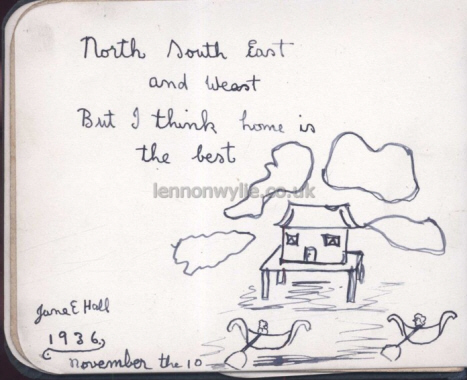 North South East
and Weast
But I think home is
the best
lennonwylie.co.uk
Jane E Hall
1936,
November the 10